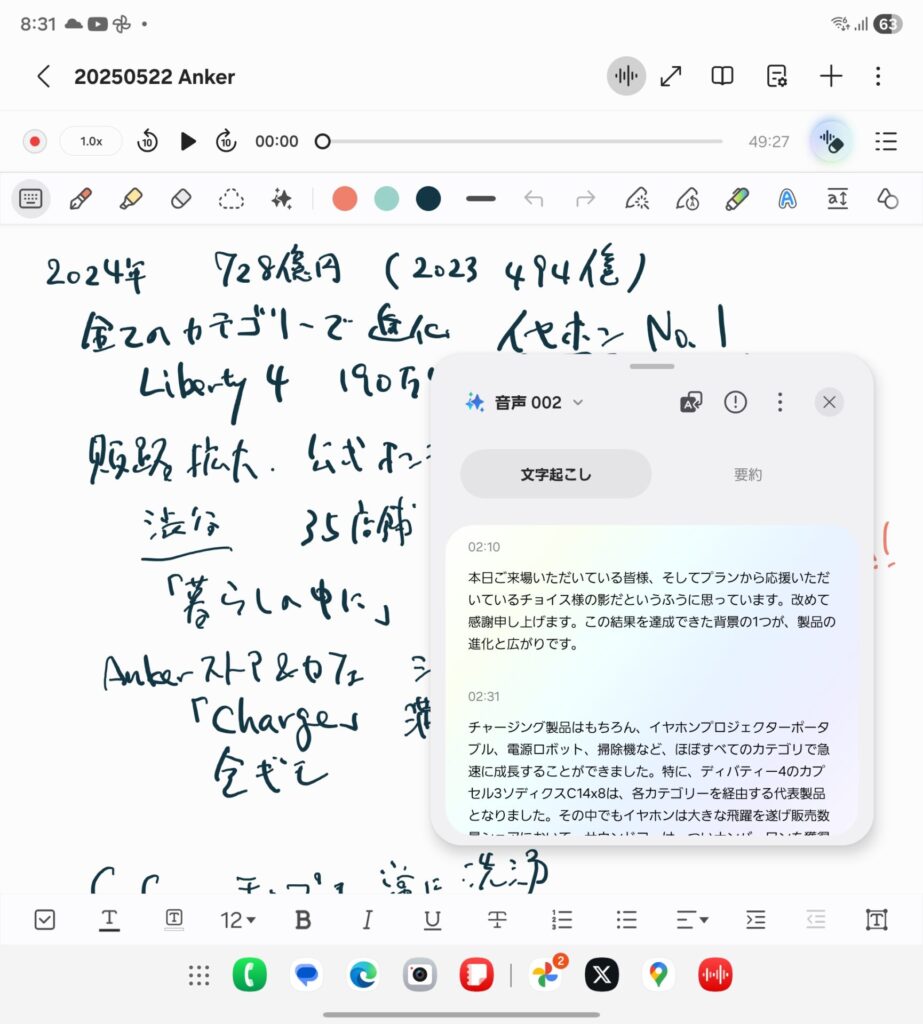 8:31
63
20250522 Anker
1.0x
10
10
00:00
49:27
2024年 728億円 (2023 494億)
全てのカテゴリーで進化 イヤホン No.1
Liberty 4 190万
販路拡大. 公式オン
渋谷 35店舗
「暮らしの中に」
Ankerストア&カフェ
「Charge」
!
音声 002
文字起こし
要約
02:10
本日ご来場いただいている皆様、そしてプランから応援いただ
いているチョイス様の影だというふうに思っています。改めて
感謝申し上げます。この結果を達成できた背景の1つが、製品の
進化と広がりです。
02:31
チャージング製品はもちろん、イヤホンプロジェクターポータ
ブル、電源ロボット、掃除機など、ほぼすべてのカテゴリで急
速に成長することができました。特に、ディバティー4のカプ
セル3ソディクスC14x8は、各カテゴリーを経由する代表製品
となりました。その中でもイヤホンは大きな飛躍を遂げ販売数
洗浄
12
B
I
U
T
2